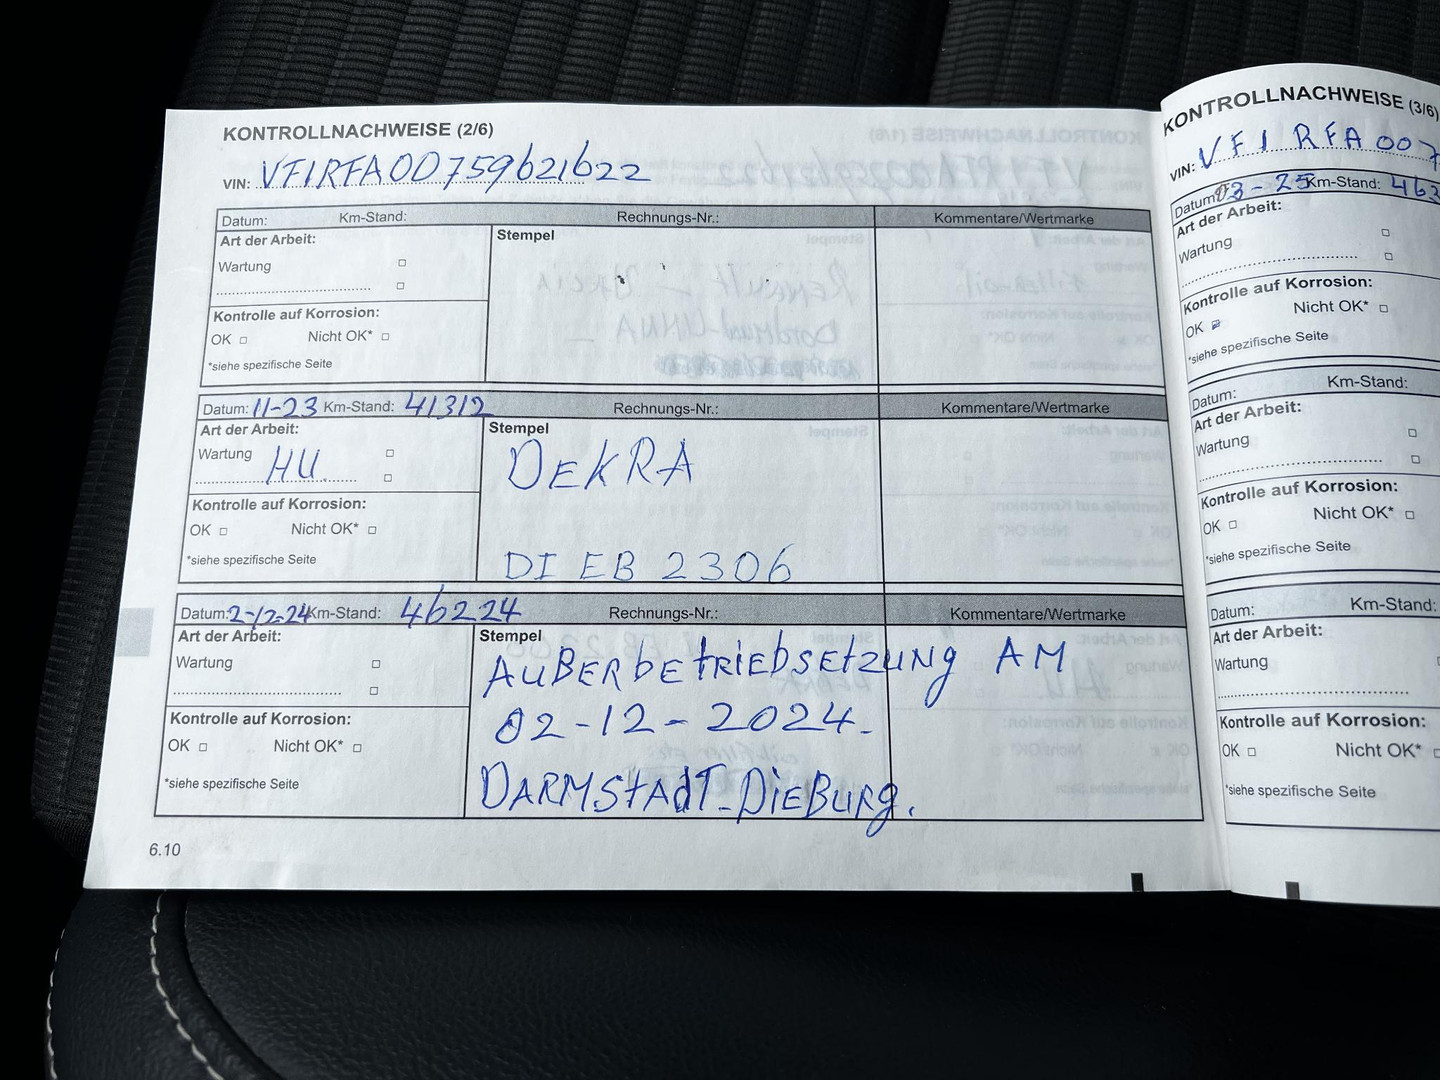 KONTROLLNACHWEISE (2/6)
VIN: VF1RFA00759621622
Datum: Km-Stand: Rechnungs-Nr.: Kommentare/Wertmarke
Art der Arbeit: Stempel
Wartung
Kontrolle auf Korrosion:
OK Nicht OK*
*siehe spezifische Seite
Datum: 11-23 Km-Stand: 41312 Rechnungs-Nr.: Kommentare/Wertmarke
Art der Arbeit: Stempel
Wartung
HU
DEKRA
Kontrolle auf Korrosion:
OK Nicht OK*
*siehe spezifische Seite
DI EB 2306
Datum: 2-12-24 Km-Stand: 46224 Rechnungs-Nr.: Kommentare/Wertmarke
Art der Arbeit: Stempel
Wartung
AUßERbETRIEbSETZUNG AM
02-12-2024.
Kontrolle auf Korrosion:
OK Nicht OK*
*siehe spezifische Seite
DARMSTAdT-DIEBURG.
6.10
KONTROLLNACHWEISE (3/6)
VIN: VF1RFA007
Datum: 03-25 Km-Stand: 463
Art der Arbeit:
Wartung
Kontrolle auf Korrosion:
OK Nicht OK*
*siehe spezifische Seite
Datum: Km-Stand:
Art der Arbeit:
Wartung
Kontrolle auf Korrosion:
OK Nicht OK*
*siehe spezifische Seite
Datum: Km-Stand:
Art der Arbeit:
Wartung
Kontrolle auf Korrosion:
OK Nicht OK*
*siehe spezifische Seite